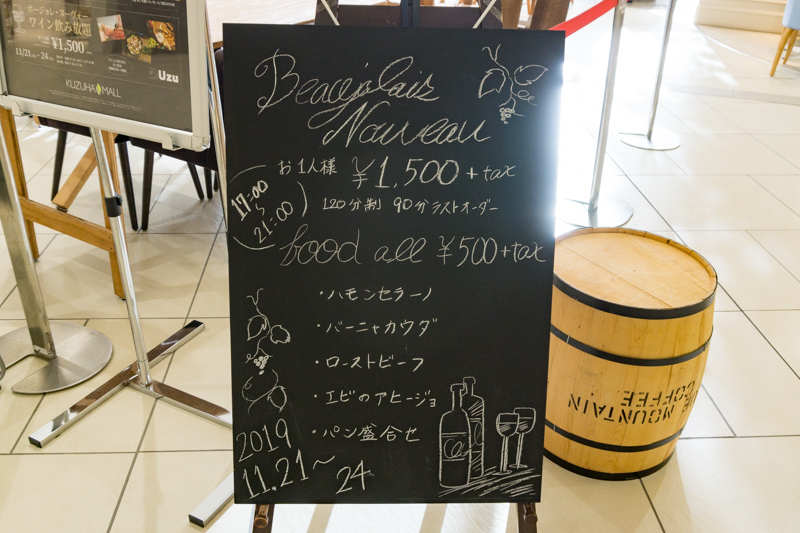 ボージョレ・ヌーヴォー
ワイン飲み放題
¥1,500
11/21(木)~24(日)
KUZUHA MALL
Uzu
Beaujolais
Nouveau
お1人様 ¥1,500+tax
17:00
~
21:00
120分制 90分ラストオーダー
food all ¥500+tax
・ハモンセラーノ
・バーニャカウダ
・ローストビーフ
・エビのアヒージョ
・パン盛合せ
2019
11.21~
24
MOUNTAIN
COFFEE